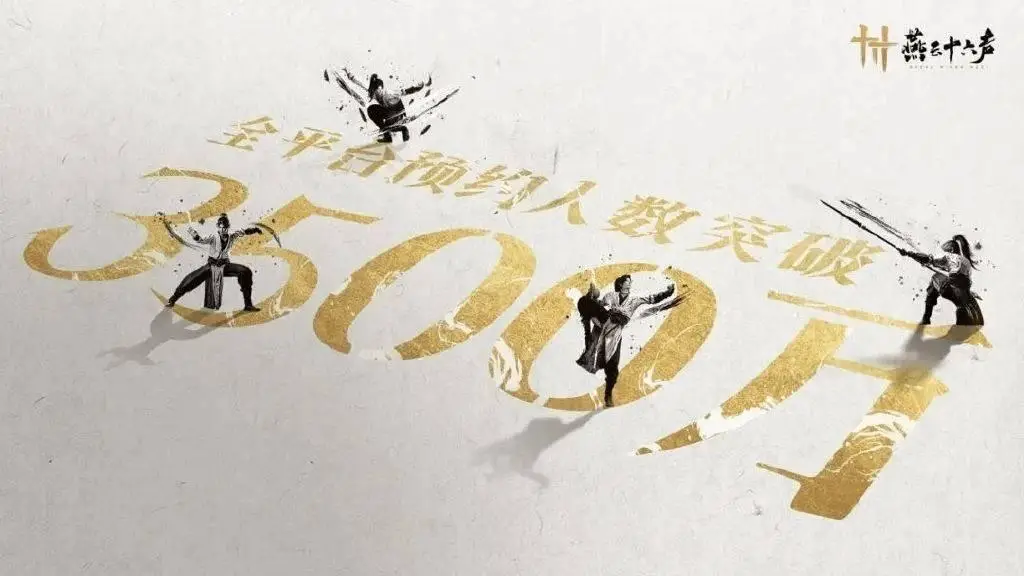 燕云十六声
全平台预约人数突破
3500万